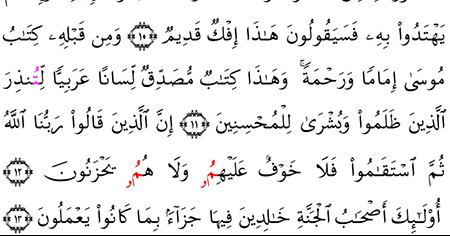 يَهْتَدُوا۟ بِهِۦ فَسَيَقُولُونَ هَٰذَا إِفْكٌ قَدِيمٌ ١٠ وَمِن قَبْلِهِۦ كِتَٰبُ
مُوسَىٰ إِمَامًا وَرَحْمَةً ۚ وَهَٰذَا كِتَٰبٌ مُّصَدِّقٌ لِّسَانًا عَرَبِيًّا لِّتُنذِرَ
ٱلَّذِينَ ظَلَمُوا۟ وَبُشْرَىٰ لِلْمُحْسِنِينَ ١١ إِنَّ ٱلَّذِينَ قَالُوا۟ رَبُّنَا ٱللَّهُ
ثُمَّ ٱسْتَقَٰمُوا۟ فَلَا خَوْفٌ عَلَيْهِمُۥ وَلَا هُمُۥ يَحْزَنُونَ ١٢
أُو۟لَٰٓئِكَ أَصْحَٰبُ ٱلْجَنَّةِ خَٰلِدِينَ فِيهَا جَزَآءًۢ بِمَا كَانُوا۟ يَعْمَلُونَ ١٣